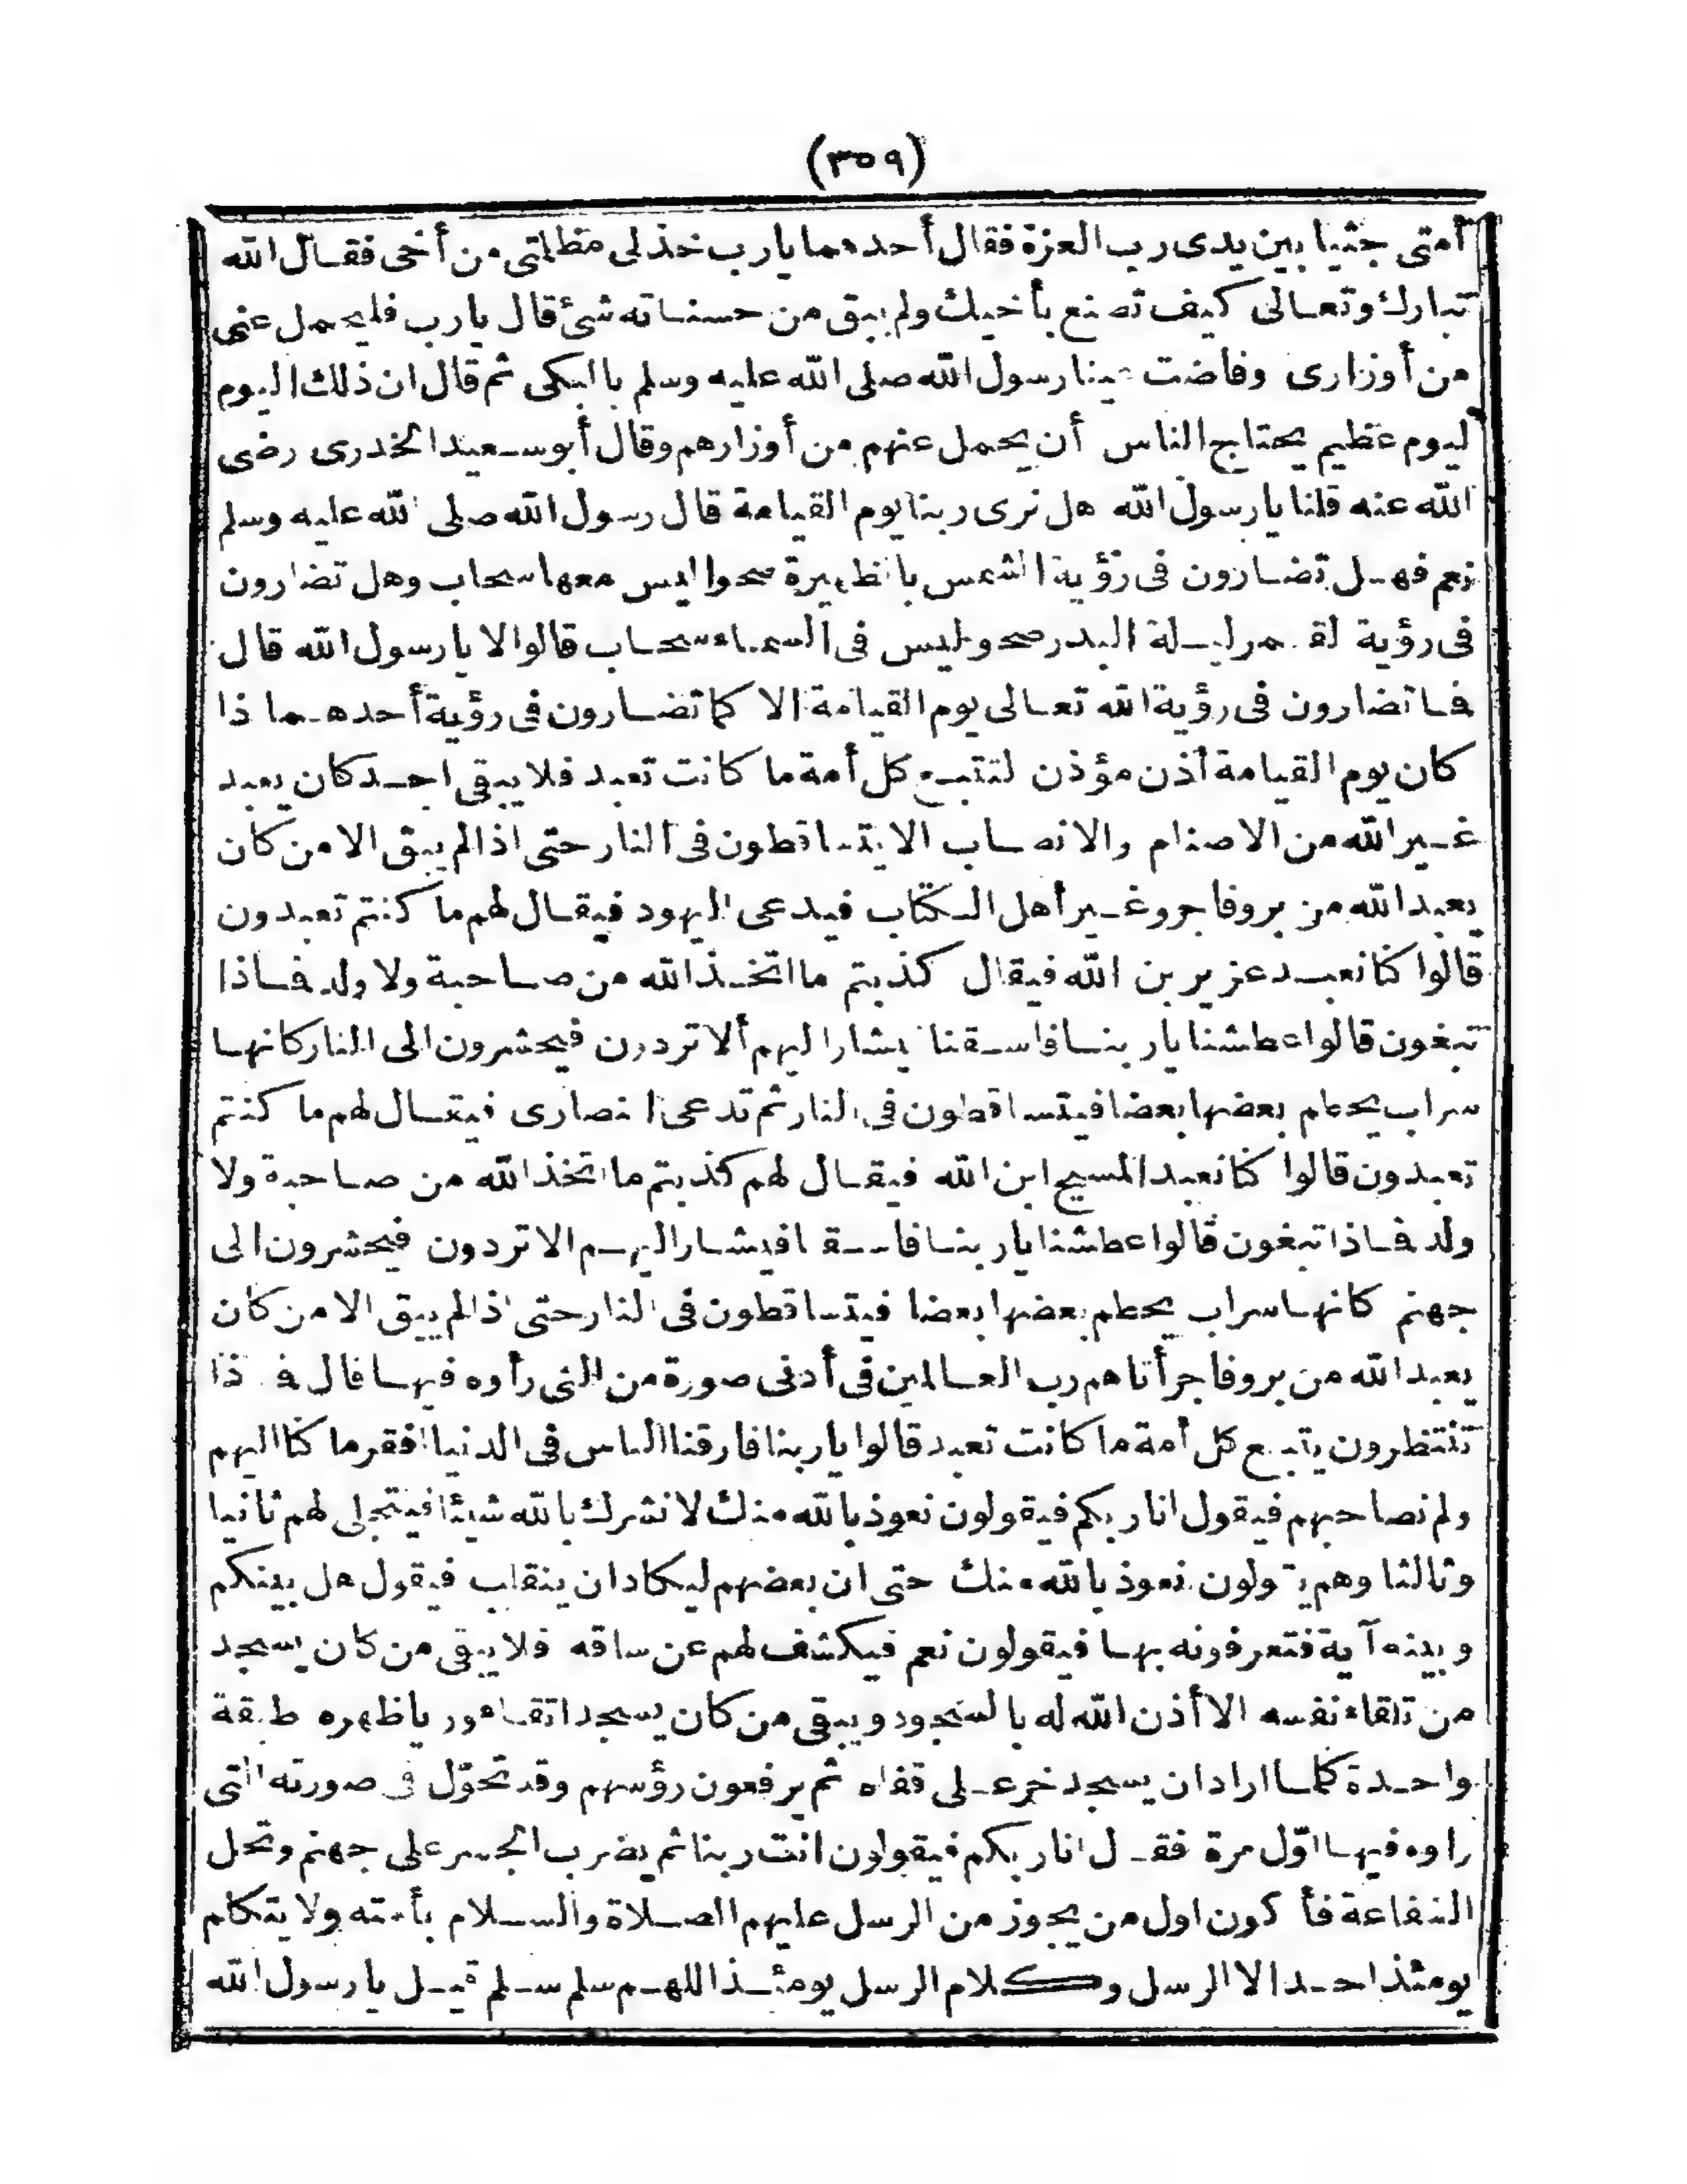 (٣٥٩)
أمتى جثيا بين يدى رب العزة فقال أحدهما يارب خذلى مظلمتى من أخى فقال الله
تبارك وتعالى كيف تصنع بأخيك ولم يبق من حسناته شئ قال يارب فليحمل عنى
من أوزارى وفاضت عينا رسول الله صلى الله عليه وسلم بالبكى ثم قال ان ذلك اليوم
ليوم عظيم يحتاج الناس أن يحمل عنهم من أوزارهم وقال أبو سعيد الخدرى رضى
الله عنه قلنا يا رسول الله هل نرى ربنا يوم القيامة قال رسول الله صلى الله عليه وسلم
نعم فهل تضارون فى رؤية الشمس بالظهيرة صحوا ليس معها سحاب وهل تضارون
فى رؤية القمر ليلة البدر صحو ليس فى السماء سحاب قالوا لا يا رسول الله قال
فما تضارون فى رؤية الله تعالى يوم القيامة الا كما تضارون فى رؤية أحدهما ذا
كان يوم القيامة أذن مؤذن لتتبع كل أمة ما كانت تعبد فلا يبقى احد كان يعبد
غير الله من الاصنام والانصاب الا يتساقطون فى النار حتى اذا لم يبق الا من كان
يعبد الله من بر وفاجر وغير أهل الكتاب فيدعى اليهود فيقال لهم ما كنتم تعبدون
قالوا كنا نعبد عزير بن الله فيقال كذبتم ما اتخذ الله من صاحبة ولا ولد فماذا
تبغون قالوا عطشنا يا ربنا فاسقنا يشار اليهم ألا تردون فيحشرون الى النار كانها
سراب يحطم بعضها بعضا فيتساقطون فى النار ثم تدعى النصارى فيقال لهم ما كنتم
تعبدون قالوا كنا نعبد المسيح ابن الله فيقال لهم كذبتم ما اتخذ الله من صاحبة ولا
ولد فماذا تبغون قالوا عطشنا يا ربنا فاسقنا فيشار اليهم الا تردون فيحشرون الى
جهنم كانها سراب يحطم بعضها بعضا فيتساقطون فى النار حتى اذا لم يبق الا من كان
يعبد الله من بر وفاجر أتاهم رب العالمين فى أدنى صورة من التى رأوه فيها قال فماذا
تنتظرون يتبع كل أمة ما كانت تعبد قالوا يا ربنا فارقنا الناس فى الدنيا افقر ما كنا اليهم
ولم نصاحبهم فيقول انا ربكم فيقولون نعوذ بالله منك لا نشرك بالله شيئا فيتجلى لهم ثانيا
وثالثا وهم يقولون نعوذ بالله منك حتى ان بعضهم ليكاد ان ينقلب فيقول هل بينكم
وبينه آية فتعرفونه بها فيقولون نعم فيكشف لهم عن ساقه فلا يبقى من كان يسجد
من تلقاء نفسه الا أذن الله له بالسجود ويبقى من كان يسجد اتقاء ورياظهره طبقة
واحدة كلما اراد ان يسجد خر على قفاه ثم يرفعون رؤسهم وقد تحوّل فى صورته التى
راوه فيها اوّل مرة فقال انا ربكم فيقولون انت ربنا ثم يضرب الجسر على جهنم وتحل
الشفاعة فأكون اول من يجوز من الرسل عليهم الصلاة والسلام بأمته ولا يتكلم
يومئذ احد الا الرسل وكلام الرسل يومئذ اللهم سلم سلم قيل يا رسول الله